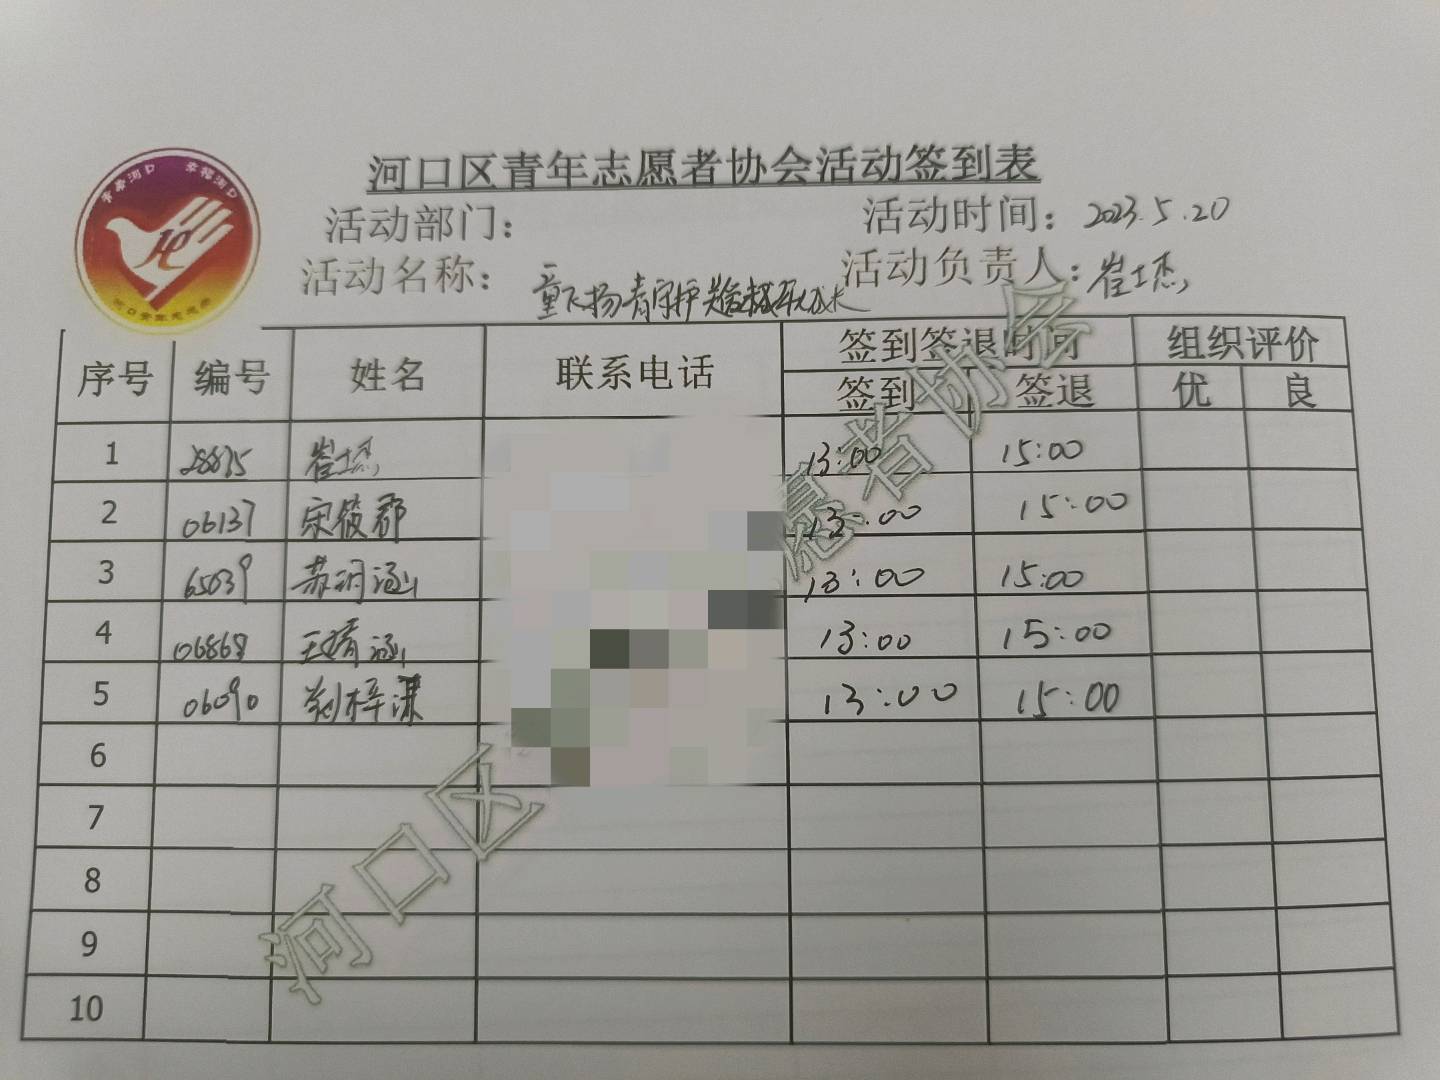 河口区青年志愿者协会活动签到表
青春河口 幸福河口
活动部门：
活动时间：2023.5.20
活动名称：童飞扬 青守护
活动负责人：崔士杰
序号 编号 姓名 联系电话 签到签退时间 组织评价
签到 签退 优 良
1 28875 崔士杰 13:00 15:00
2 06137 宋筱郡 13:00 15:00
3 65039 苏玥涵 13:00 15:00
4 06868 王婧涵 13:00 15:00
5 06090 刘梓漾 13:00 15:00
6
7
8
9
10
河口区 愿者协会